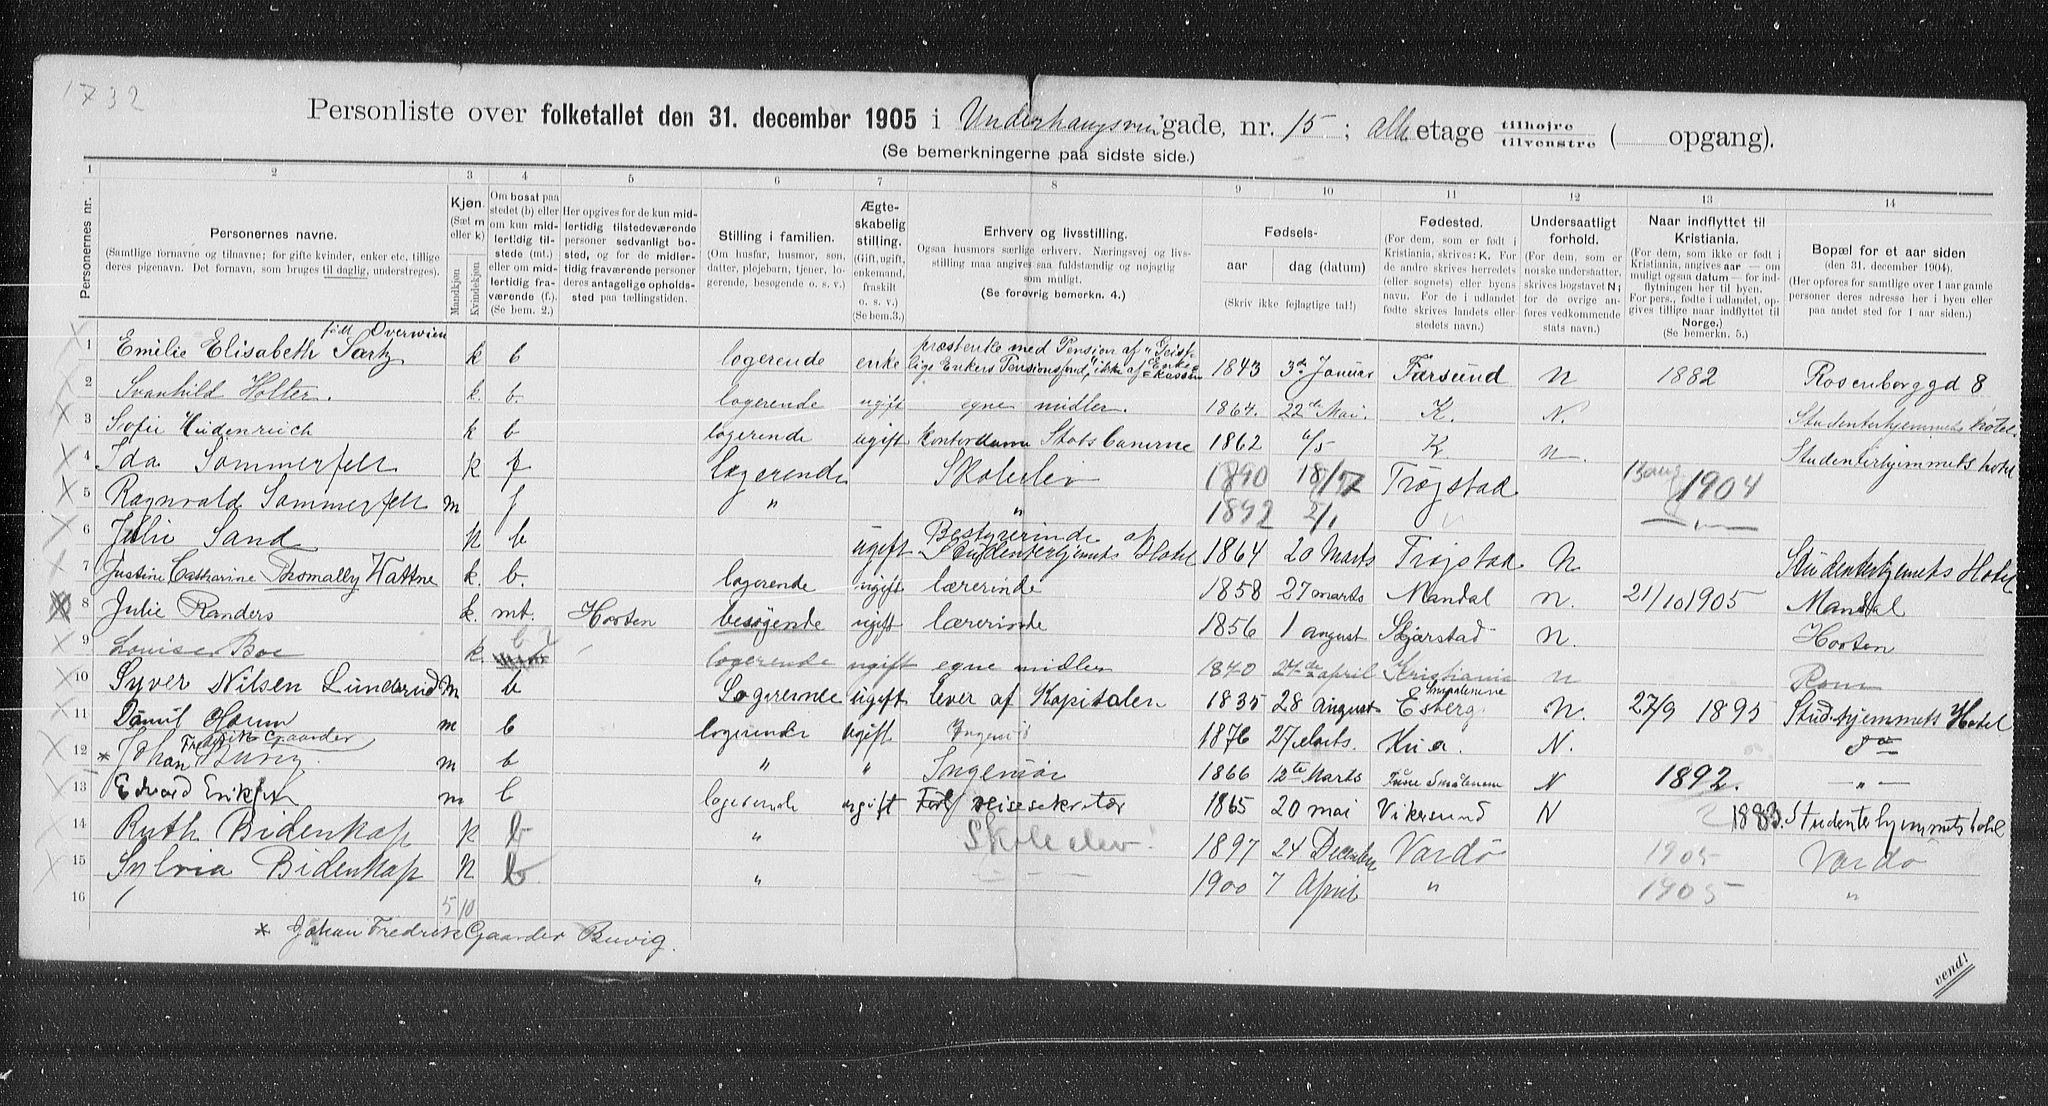 1732
Personliste over folketallet den 31. december 1905 i Underhaugsvei gade, nr. 15; alle etage tilhøjre tilvenstre ( opgang).
(Se bemerkningerne paa sidste side.)
1 2 3 4 5 6 7 8 9 10 11 12 13 14
Personernes nr.
Personernes navne.
(Samtlige fornavne og tilnavne; for gifte kvinder, enker etc. tillige
deres pigenavn. Det fornavn, som bruges til daglig, understreges).
Kjøn.
(Sæt m
eller k)
Mandkjøn
Kvindekjøn
Om bosat paa
stedet (b) eller
om kun mid-
lertidig til-
stede (mt.)
eller om mid-
lertidig fra-
værende (f.)
(Se bem. 2.)
Her opgives for de kun mid-
lertidig tilstedeværende
personer sedvanligt bo-
sted, og for de midler-
tidig fraværende personer
deres antagelige opholds-
sted paa tællingstiden.
Stilling i familien.
(Om husfar, husmor, søn,
datter, plejebarn, tjener, lo-
gerende, besøgende o. s. v.)
Ægte-
skabelig
stilling.
(Gift, ugift,
enkemand,
fraskilt
o. s. v.)
(Se bem.3.)
Erhverv og livsstilling.
Ogsaa husmors særlige erhverv. Næringsvej og livs-
stilling maa angives saa fuldstændig og nøjagtig
som muligt.
(Se forøvrig bemerkn. 4.)
Fødsels-
aar
dag (datum)
(Skriv ikke fejlagtige tal!)
Fødested.
(For dem, som er født i
Kristiania, skrives: K. For
de andre skrives herredets
(eller sognets) eller byens
navn. For de i udlandet
fødte skrives landets eller
stedets navn.)
Undersaatligt
forhold.
(For dem, som er
norske undersaatter,
skrives bogstavet N;
for de øvrige an-
føres vedkommende
stats navn).
Naar indflyttet til
Kristiania.
(For dem, som ikke er født i
Kristiania, angives aar — om
muligt ogsaa datum — for ind-
flytningen her til byen.
For pers., fødte i udlandet, op-
gives tillige naar indflyttet til
Norge.)
(Se bemerkn. 5.)
Bopæl for et aar siden
(den 31. december 1904).
(Her opføres for samtlige over 1 aar gamle
personer deres adresse her i byen eller
paa andet sted for 1 aar siden.)
1 Emilie Elisabeth Sartz født Overwien k b logerende enke præstenke med Pension af "Geist-lige Enkers Pensionsfond", ikke af Enkekassen 1843 3de Januar Farsund N 1882 Rosenborggd 8
2 Svanhild Holter. k. b. logerende ugift egne midler. 1864. 22de Mai. K. N. Studenterhjemmets hotel.
3 Sofie Heidenreich k b logerende ugift kontordame Statsbanerne 1862 6/5 K n. Studenterhjemmets hotel
4 Ida Sommerfelt k f logerende Skoleelev 1890 18/ Trøgstad 1904
5 Ragnvald Sommerfelt m f " " 1892 2/1 " — " —
6 Julie Sand k b ugift Bestyrerinde af Studenterhjemmets Hotel 1864 20 Marts Trøgstad N Studenterhjemmets Hotel
7 Justine Catharine Thomally Wattne k. b. logerende ugift lærerinde 1858 27 marts Mandal n. 21/10 1905 Mandal
8 Julie Randers k. mt. Horten besøgende ugift lærerinde 1856 1 august Skjærstad n. Horten
9 Louise Boe k. b logerende ugift egne midler 1870 27de april Kristiania n Rom
10 Syver Nilsen Lunderud m b Logerende ugift lever af Kapitalen 1835 28 august Esberg Smaalenene N. 27/9 1895 Stud.hjemmets Hotel
11 Daniel m b logerende ugift Ingeniør 1876 27 Marts. Kr.a. N. do
12 * Johan Fredrik Gaarder Buvig. m b " " Ingeniør 1866 12te Marts Tune Smålenene N 1892. " —
13 Edvard Eriksen m b logerende ugift reisesekretær 1865 20 mai Vikersund N 1883. Studenterhjemmets hotel
14 Ruth Bidenkap k b " Skoleelev! 1897 24 December Vardø 1905 Vardø
15 Sylvia Bidenkap k b " — — — 1900 7 April " 1905 "
16
5 10
* Johan Fredrik Gaarder Buvig.
vend!